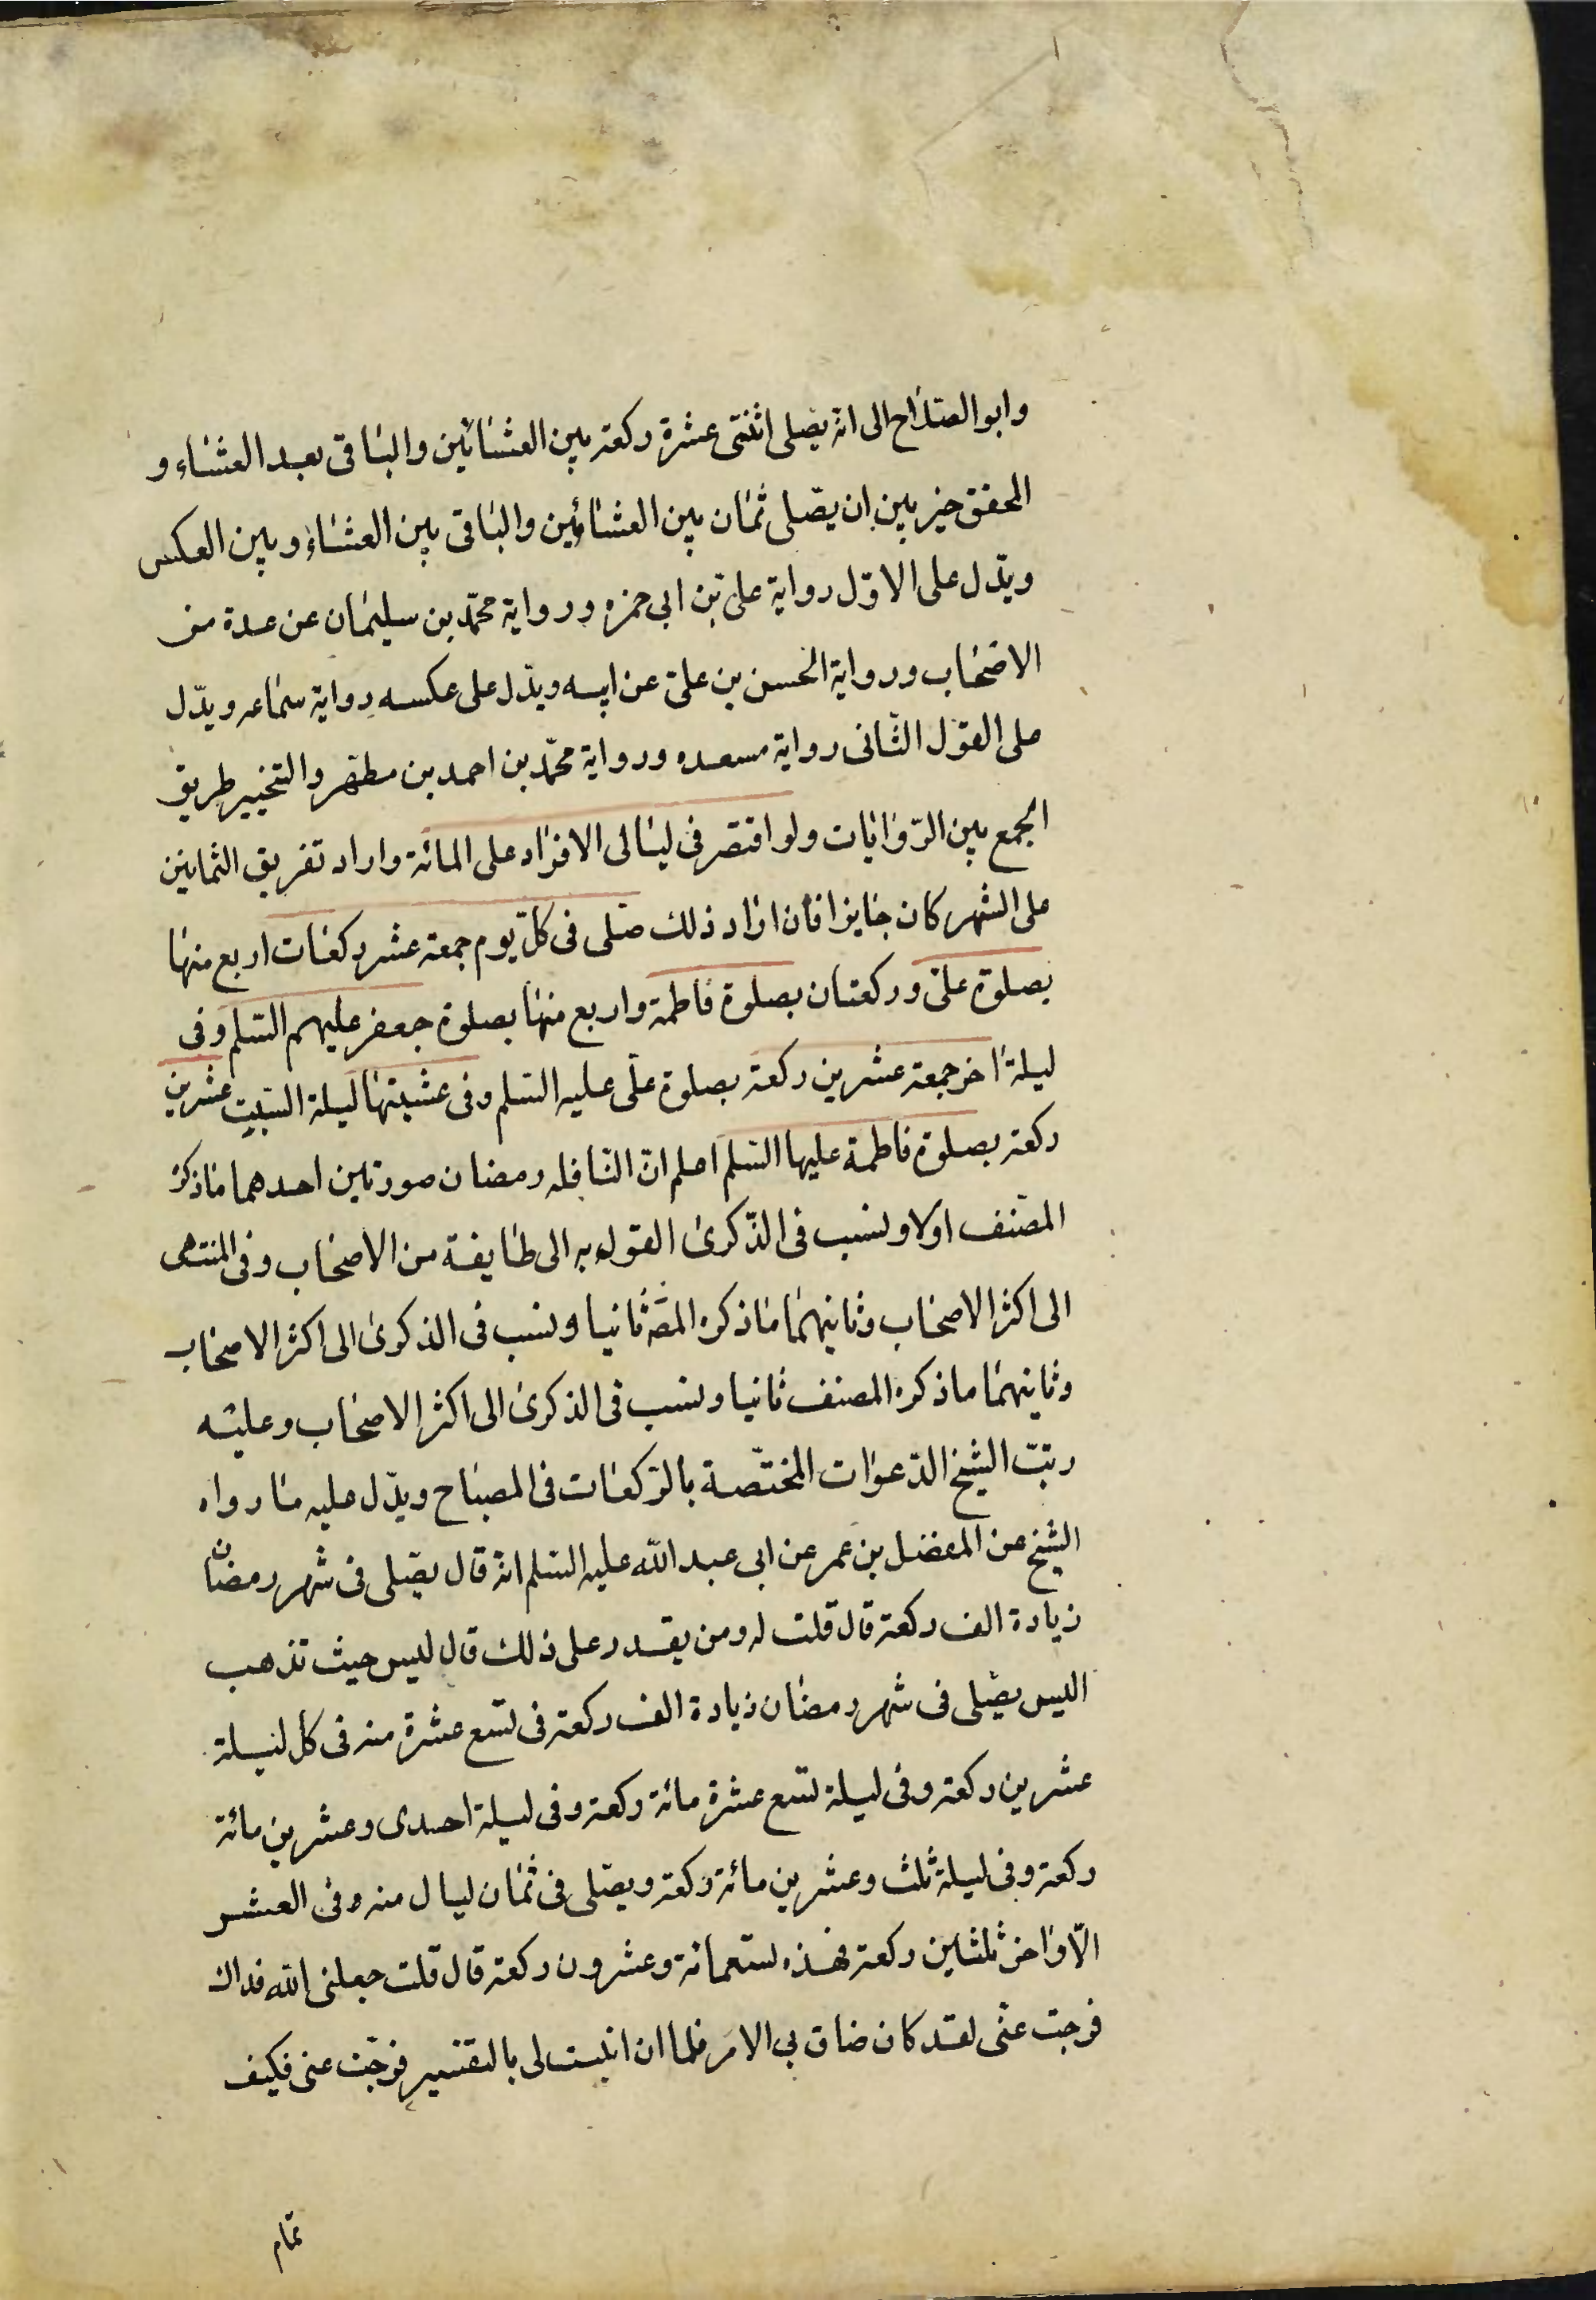 وابو الصلاح الى انه يصلى اثنتى عشرة ركعة بين العشائين والباقى بعد العشاء و
المحقق خير بين ان يصلى ثمان بين العشائين والباقى بين العشاء وبين العكس
ويدل على الاول رواية على بن ابى حمزه ورواية محمد بن سليمان عن عدة من
الاصحاب ورواية الحسن بن على عن ابيه ويدل على عكسه رواية سماعه ويدل
على القول الثانى رواية مسعده ورواية محمد بن احمد بن مطهر والتخيير طريق
الجمع بين الروايات ولو اقتصر فى ليالى الافراد على المائة واراد تفريق الثمانين
على الشهر كان جايزا فان اراد ذلك صلى فى كل يوم جمعة عشر ركعات اربع منها
بصلوة على وركعتان بصلوة فاطمة واربع منها بصلوة جعفر عليهم السلم وفى
ليلة اخر جمعة عشرين ركعة بصلوة على عليه السلم وفى عشيتها ليلة السبت عشرين
ركعة بصلوة فاطمة عليها السلم اعلم ان النافله رمضان صورتين احدهما ماذكره
المصنف اولا ونسب فى الذكرى القول به الى طايفة من الاصحاب وفى المنتهى
الى اكثر الاصحاب وثانيهما ماذكره المصه ثانيا ونسب فى الذكرى الى اكثر الاصحاب
وثانيهما ماذكره المصنف ثانيا ونسب فى الذكرى الى اكثر الاصحاب وعليه
رتبت الشيخ الدعوات المختصة بالركعات فى المصباح ويدل عليه ما رواه
الشيخ عن المفضل بن عمر عن ابى عبد الله عليه السلم انه قال يصلى فى شهر رمضان
زيادة الف ركعة قال قلت له ومن يقدر على ذلك قال ليس حيث تذهب
اليس يصلى فى شهر رمضان زيادة الف ركعة فى تسع عشرة منه فى كل ليلة
عشرين ركعة وفى ليلة تسع عشرة مائة ركعة وفى ليلة احدى وعشرين مائة
ركعة وفى ليلة ثلث وعشرين مائة ركعة ويصلى فى ثمان ليال منه وفى العشر
الاواخر ثلثين ركعة فهذه تسعمائة وعشرون ركعة قال قلت جعلنى الله فداك
فرجت عنى لقد كان ضاق بى الامر فلما ان اتيت لى بالتفسير فرجت عنى فكيف
تمام